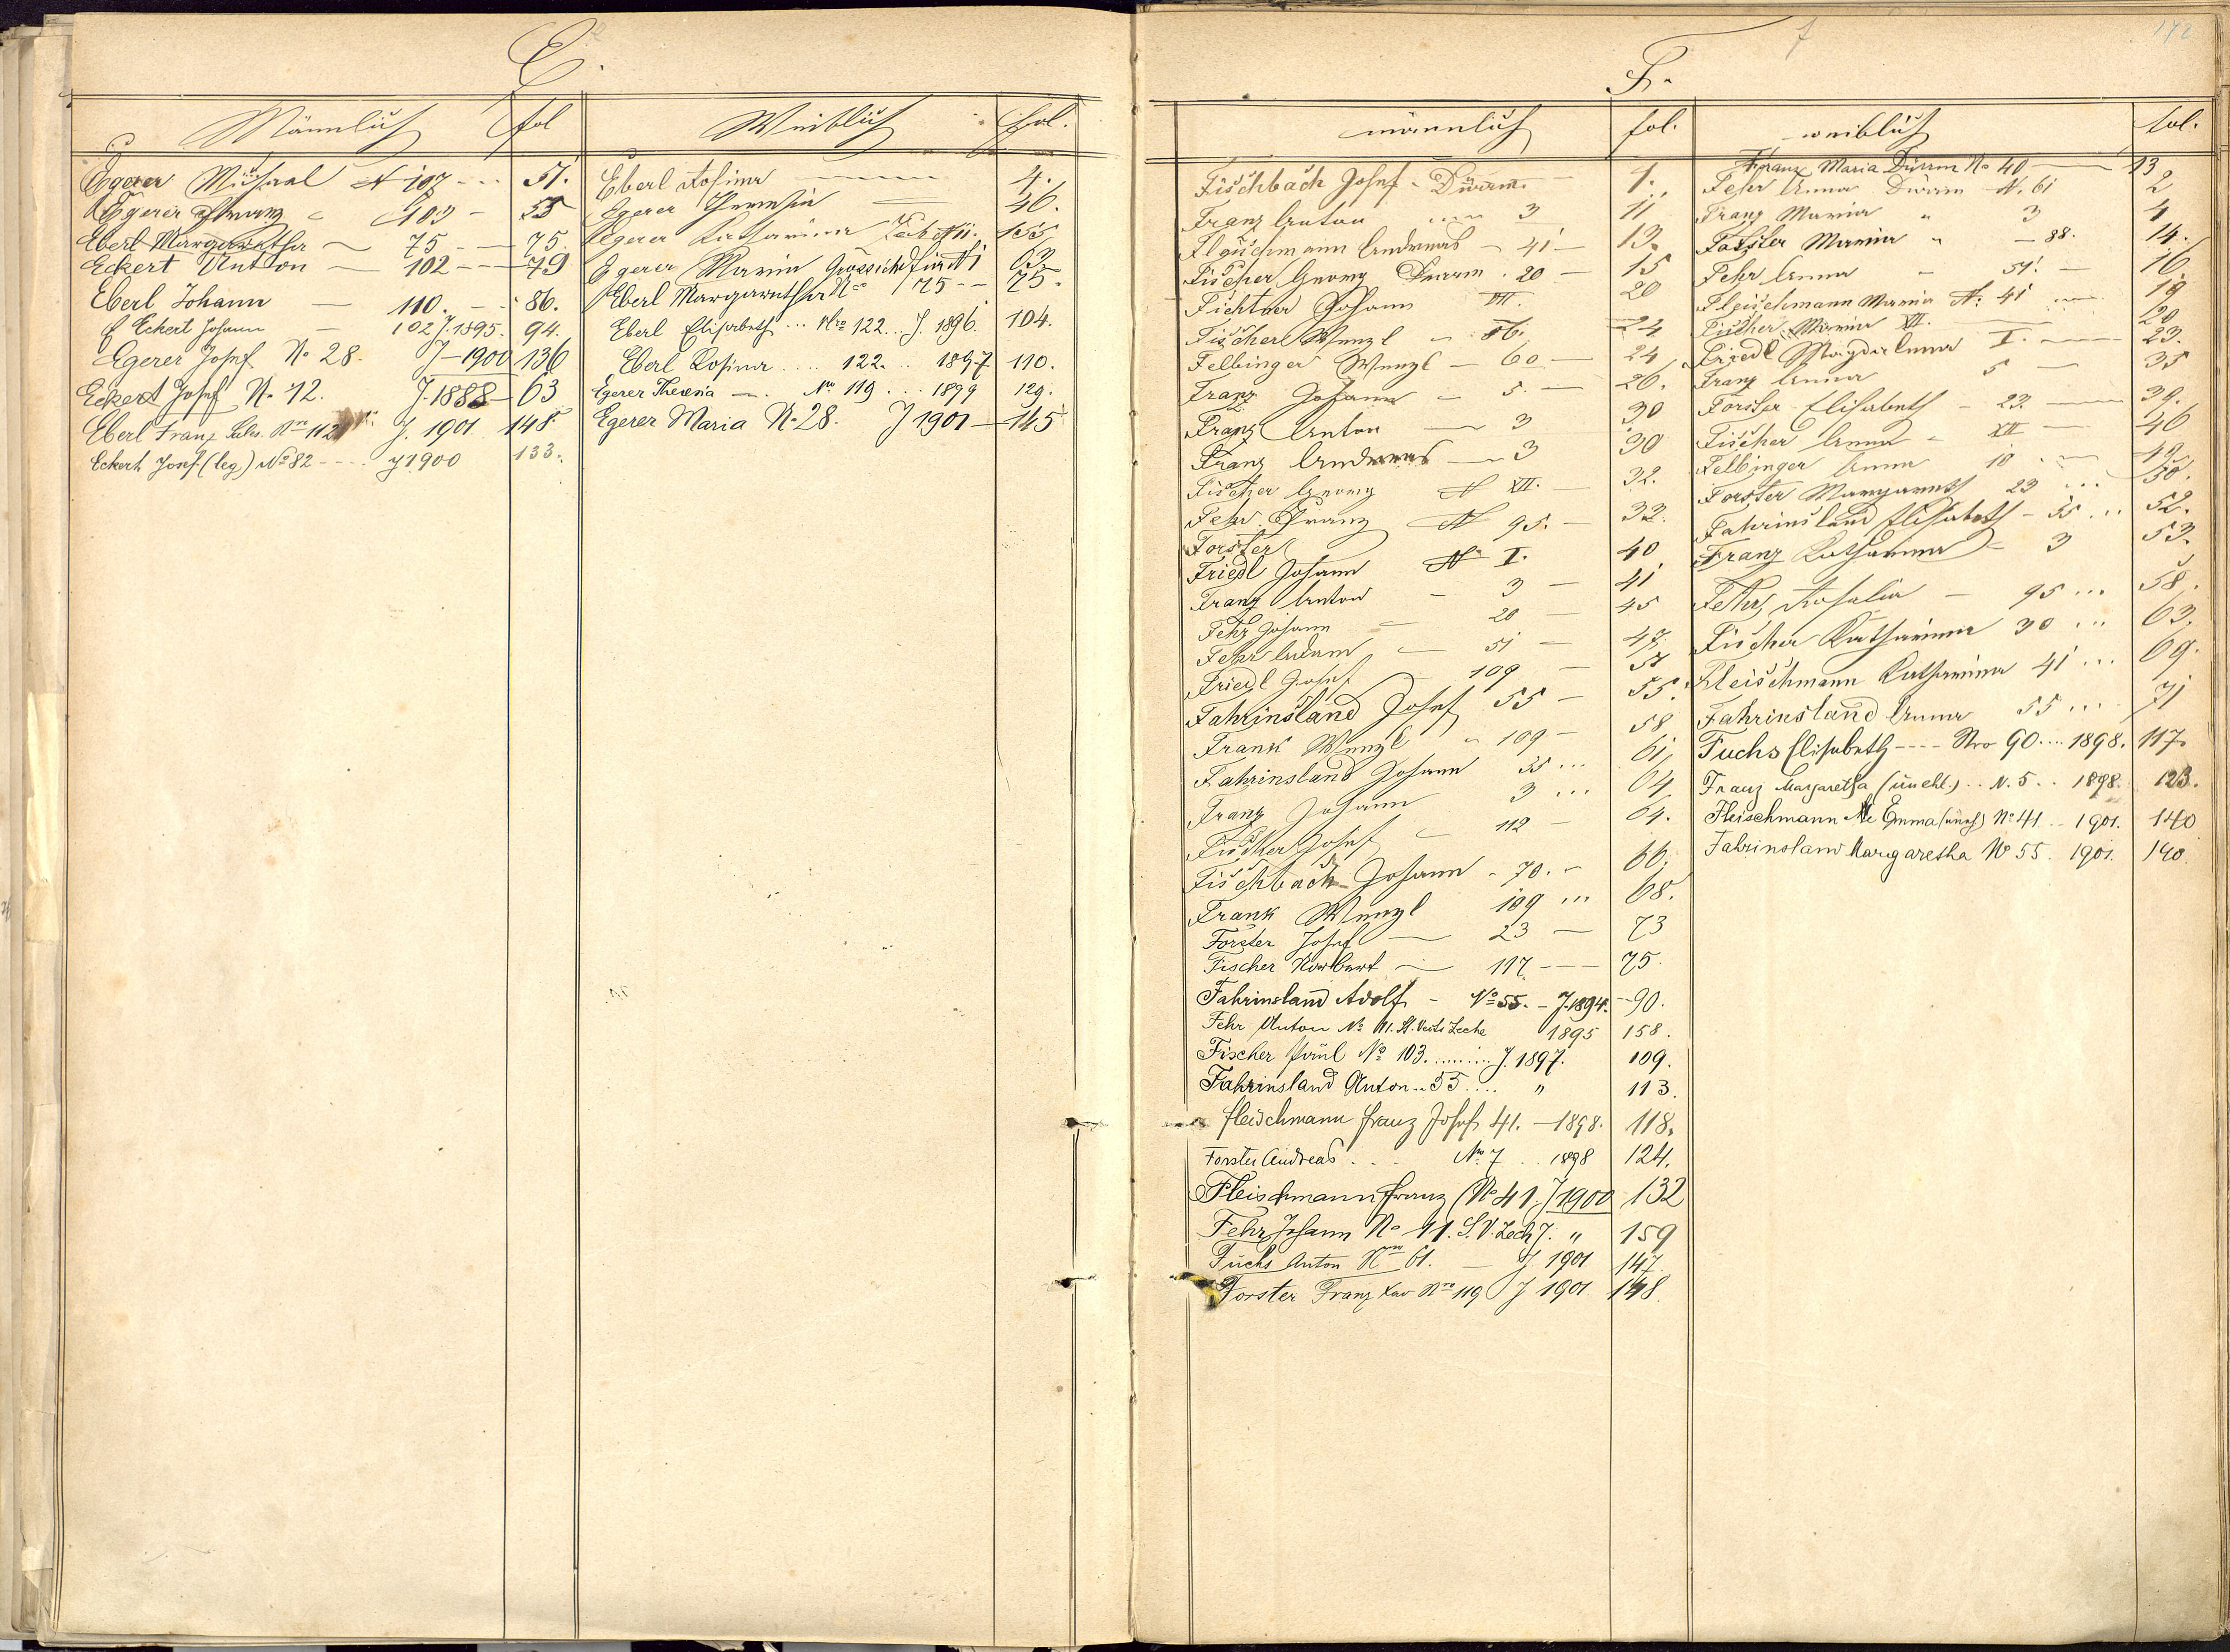 E.
Männlich fol
Egerer Michael N 107 - .. 51.
Egerer Franz 103 - 55
Eberl Margaretha — 75 - — 75.
Eckert Anton — 102 - — 79
Eberl Johann — 110. - - 86.
Eckert Johann — 102 J. 1895. 94.
Egerer Josef No 28. J—1900 136
Eckert Josef No 12. J. 1888— 63
Eberl Franz Sales. Nro 112 J. 1901 148
Eckert Josef (leg) No 82 - - - - J 1900 133.
Weiblich fol.
Eberl Rosina 4.
Egerer Theresia 46.
Egerer Katharina Zech N 11. 155
Egerer Maria N 1 63
Eberl Margaretha No 75 - - 75.
Eberl Elisabeth ... Nro 122 ... J. 1896. 104.
Eberl Rosina .... 122. .. 1897 110.
Egerer Theresia —. No 119 ... 1899 129.
Egerer Maria No 28. J 1901 — 145
172
F.
männlich fol.
Fischbach Josef - Dürrm. 1.
Franz Anton 3 11
Fleischmann Andreas — 41 — 13.
Fischer Georg Dürrm. 20 — 15
Fichtner Johann VII. 20
Fischer Wenzl 24
Felbinger Wenzl — 60 — 24
Franz Johann — 5 — 26.
Franz Anton — 3 30
Franz Andreas — 3 30
Fischer Georg N XII. — 32.
Fehr Franz N 95. — 33.
Forster
Friedl Johann N I. 40
Franz Anton - 3 — 41
Fehr Johann — 20 — 45
Fehr Adam — 51 — 47
Friedl Josef 109 —
Fahrinsland Josef 55 — 55.
Frank Wenzl " 109 — 58
Fahrinsland Johann 55 ... 61,
Franz Johann 3 ... 64,
Fischer Josef — 112 — 64.
Fischbach Johann - 70. - 66.
Frank Wenzl 109 ... 68.
Forster Josef — 23 — 73
Fischer Norbert — 117 - — 75.
Fahrinsland Adolf - No 55. - J. 1894. - 90.
Fehr Anton No 11. St. Veits Zeche 1895 158.
Fischer Paul No 103. ........ J. 1897. 109.
Fahrinsland Anton .. 55 .... " 113.
Fleischmann Franz Josef 41. — 1898. 118.
Forster Andreas . . . No 7 . . 1898 124.
Fleischmann Franz No 41. J 1900 132
Fehr Johann No 11. S. V. Zech J. " 159
Fuchs Anton Nro 61. — J 1901 147.
Forster Franz Xav Nro 119 J 1901 148
weiblich fol.
Franz Maria Dürrm No 40 — 13
Fehr Anna Dürrm N. 61 2
Franz Maria " 3 4
Forster Maria " — 88. 14.
Fehr Anna - 51. — 16
Fleischmann Maria N. 41 19
Fischer Maria VII. 20
Friedl Magdalena I. — 23.
Franz Anna 5 — 35
Forster Elisabeth - 23. — 39.
Fischer Anna - XII — 46
Felbinger Anna 10 . — 49
Forster Margareth 23 ... 50.
Fahrinsland Elisabeth - 55 ... 52.
Franz Katharina - 3 53.
Fehr, Rosalia — 95 ... 58.
Fischer Katharina 30 ... 63.
Fleischmann Katharina 41 ... 69.
Fahrinsland Anna 55 ... 71
Fuchs Elisabeth - - - - Nro 90 .... 1898. 117.
Franz Margaretha (unehl.) .. N. 5 . . 1898. 123.
Fleischmann Emma No 41 .. 1901. 140
Fahrinsland Margaretha No 55. 1901. 140.